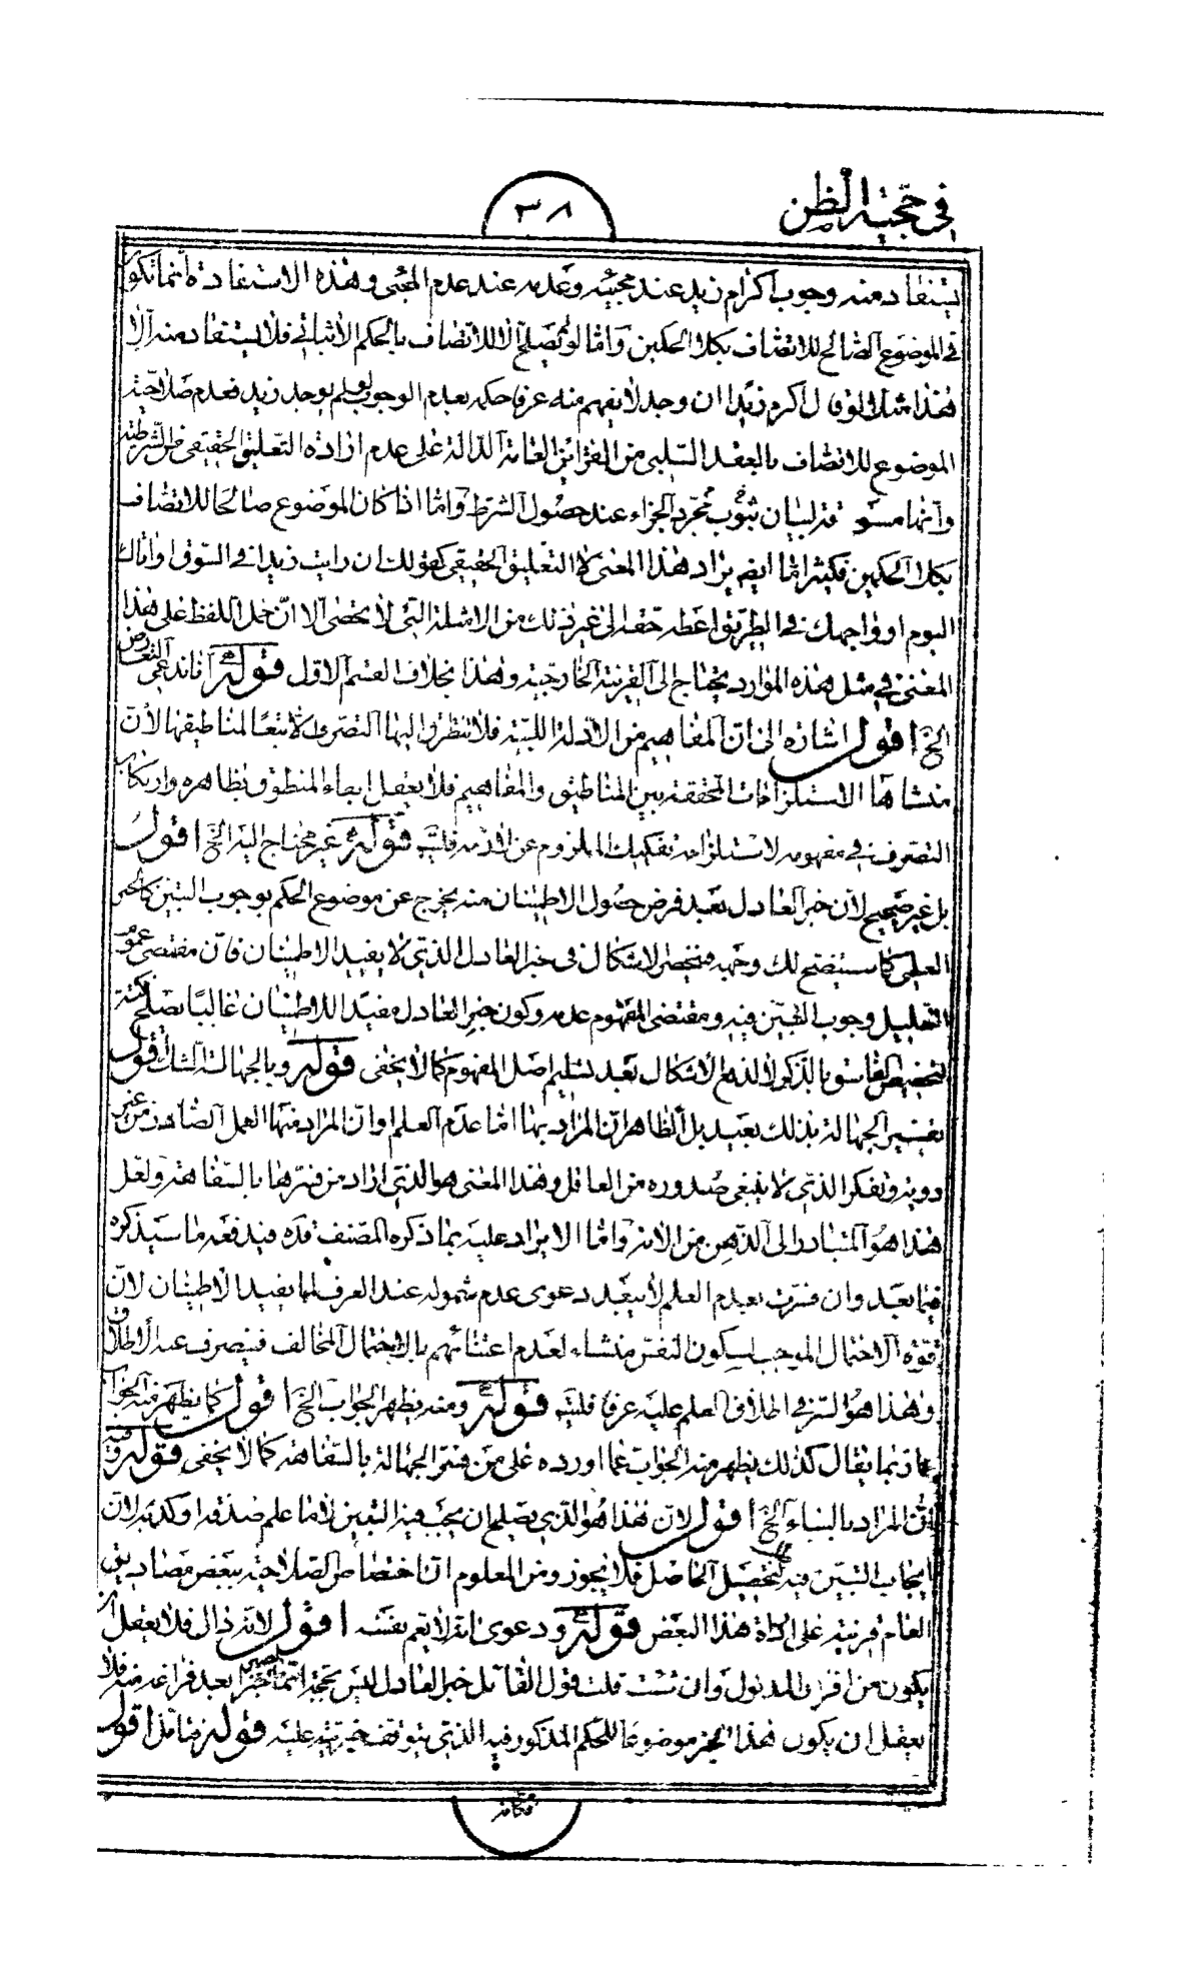 في حجية الظن
٣٨
يستفاد منه وجوب اكرام زيد عند مجيئه وعدمه عند عدم المجئ وهذه الاستفادة انما تكون
في الموضوع الصالح للاتصاف بكلا الحكمين واما لو لم يصلح الا للاتصاف بالحكم الاثباتي فلا يستفاد منه الا
هذا مثلا لو قال اكرم زيدا ان وجد لا يفهم منه عرفا حكمه بعدم الوجوب لو لم يوجد زيد فعدم صلاحية
الموضوع للاتصاف بالعقد السلبي من القرائن العامة الدالة على عدم ارادة التعليق الحقيقي من الشرطية
وانها مسوقة لبيان ثبوت مجرد الجزاء عند حصول الشرط واما اذا كان الموضوع صالحا للاتصاف
بكلا الحكمين فكثيرا ما ايضا يراد هذا المعنى لا التعليق الحقيقي كقولك ان رايت زيدا في السوق او اتاك
اليوم او واجهك في الطريق اعطه حقه الى غير ذلك من الامثلة التي لا تحصى الا ان حمل اللفظ على هذا
المعنى في مثل هذه الموارد يحتاج الى القرينة الخارجية وهذا بخلاف القسم الاول قوله فانه عجى التعارض
الخ اقول اشارة الى ان المفاهيم من الادلة اللبية فلا يتطرق اليها التصرف الا تبعا لمناطيقها لان
منشاها الاستلزامات المحققة بين المناطيق والمفاهيم فلا يعقل ابقاء المنطوق بظاهره وارتكاب
التصرف في مفهومه لاستلزامه تفكيك الملزوم عن لازمه فليت قوله غير محتاج اليه الخ اقول
بل غير صحيح لان خبر العادل بعد فرض حصول الاطينان منه يخرج عن موضوع الحكم بوجوب التبين كالخبر
العلمي كما سيتضح لك وجهه فينحصر الاشكال في خبر العادل الذي لا يفيد الاطينان فان مقتضى عموم
التعليل وجوب التبين فيه ومقتضى المفهوم عدمه وكون خبر العادل مفيدا للاطينان غالبا يصلح نكتة
لتخصيص الفاسق بالذكر لا لدفع الاشكال بعد تسليم اصل المفهوم كما لا يخفى قوله وبالجهالة الشك اقول
تفسير الجهالة بذلك بعيد بل الظاهر ان المراد بها اما عدم العلم او ان المراد منها العمل الصادر من غير
روية وتفكر الذي لا ينبغي صدوره من العاقل وهذا المعنى هو الذي اراد من فسرها بالسفاهة ولعل
هذا هو المتبادر الى الذهن من الاية واما الايراد عليه بما ذكره المصنف قده فيدفعه ما سيذكره
فيما بعد وان فسرت بعدم العلم لا يبعد دعوى عدم شموله عند العرف لما يفيد الاطينان لان
قوة الاحتمال الموجب لسكون النفس منشاء لعدم اعتنائهم بالاحتمال المخالف فينصرف عنه الاطلاق
وهذا هو السر في اطلاق العلم عليه عرفا فليت قوله ومنه يظهر الجواب الخ اقول كما يظهر منه الجواب
عما ربما يقال كذلك يظهر منه الجواب عما اورده على من فسر الجهالة بالسفاهة كما لا يخفى قوله وفيه
ان المراد بالنباء الخ اقول لان هذا هو الذي يصلح ان يجب فيه التبين لا ما علم صدقه او كذبه لان
ايجاب التبين فيه كتحصيل الحاصل فلا يجوز ومن المعلوم ان اختصاص الصلاحية ببعض مصاديق
العام قرينة على ارادة هذا البعض قوله ودعوى انه لا يعم نفسه اقول لانه دال فلا يعقل ان
يكون من افراد المدلول وان شئت قلت قول القائل خبر العادل ليس بحجة انما يصير خبرا بعد فراغه منه فلا
يعقل ان يكون هذا الخبر موضوعا للحكم المذكور فيه الذي يتوقف خبريته عليه قوله فتامل اقول